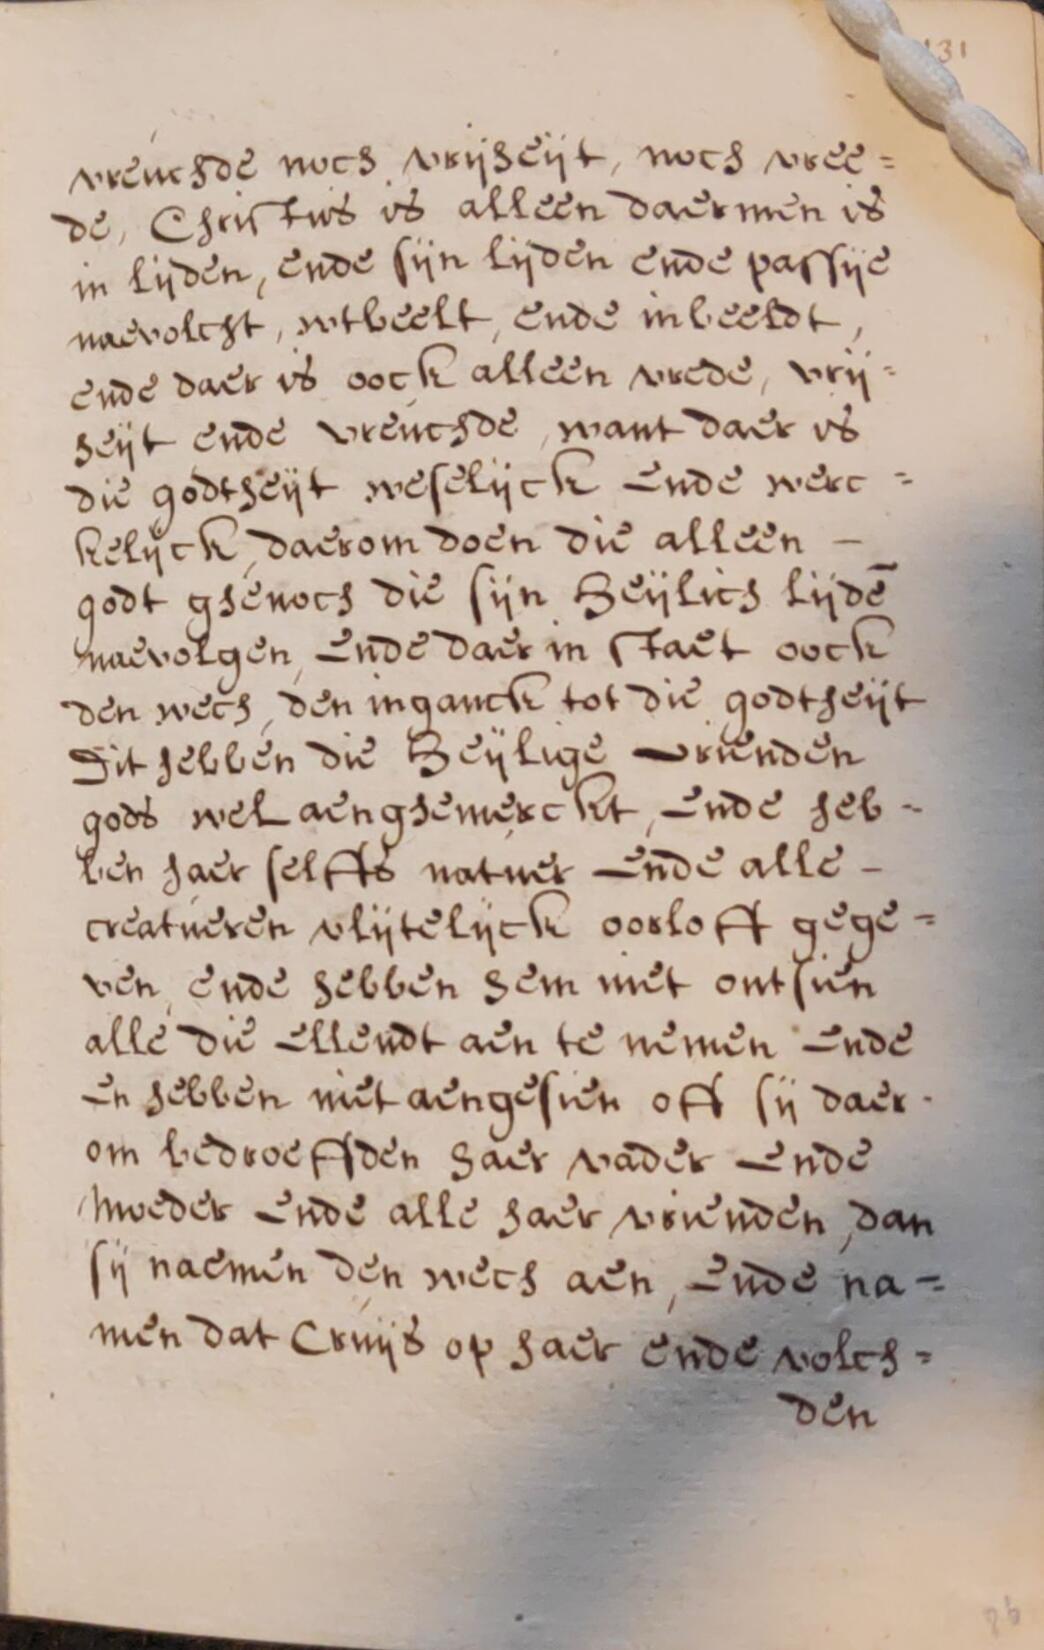 131
vreuchde noch vrijheijt, noch vree=
de, Christus is alleen daermen is
in lijden, ende sijn lijden ende passije
naevolcht, wtbeelt, ende inbeeldt,
ende daer is oock alleen vrede, vrij=
heijt ende vreuchde, want daer is
die godtheijt weselijck ende werc=
kelijck, daerom doen die alleen –
godt ghenoch die sijn heijlich lijdē
naevolgen, ende daer in staet oock
den wech, den inganck tot die godtheijt
Dit hebben die heijlige vrienden
gods wel aenghemerckt, ende heb-
ben haer selffs natuer ende alle –
creatueren vlijtelijck oorloff gege=
ven, ende hebben hem niet ontsien
alle die ellendt aen te nemen ende
en hebben niet aengesien off sij daer-
om bedroeffden haer vader ende
moeder ende alle haer vrienden, dan
sij naemen den wech aen, ende na=
men dat Cruijs op haer ende volch=
den